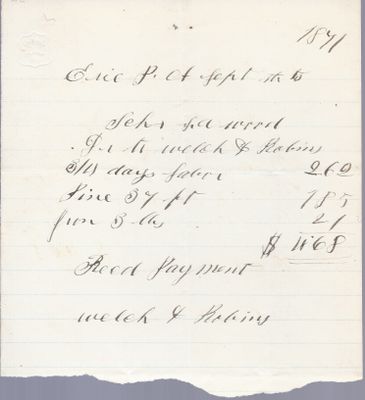 1871
Erie P. A Sept
John
Dr to Welch & Robins
days labor 2 62
Pine 37 ft 1 85
Iron 3 lbs 21
$ 4.68
Recd Payment
Welch & Robins